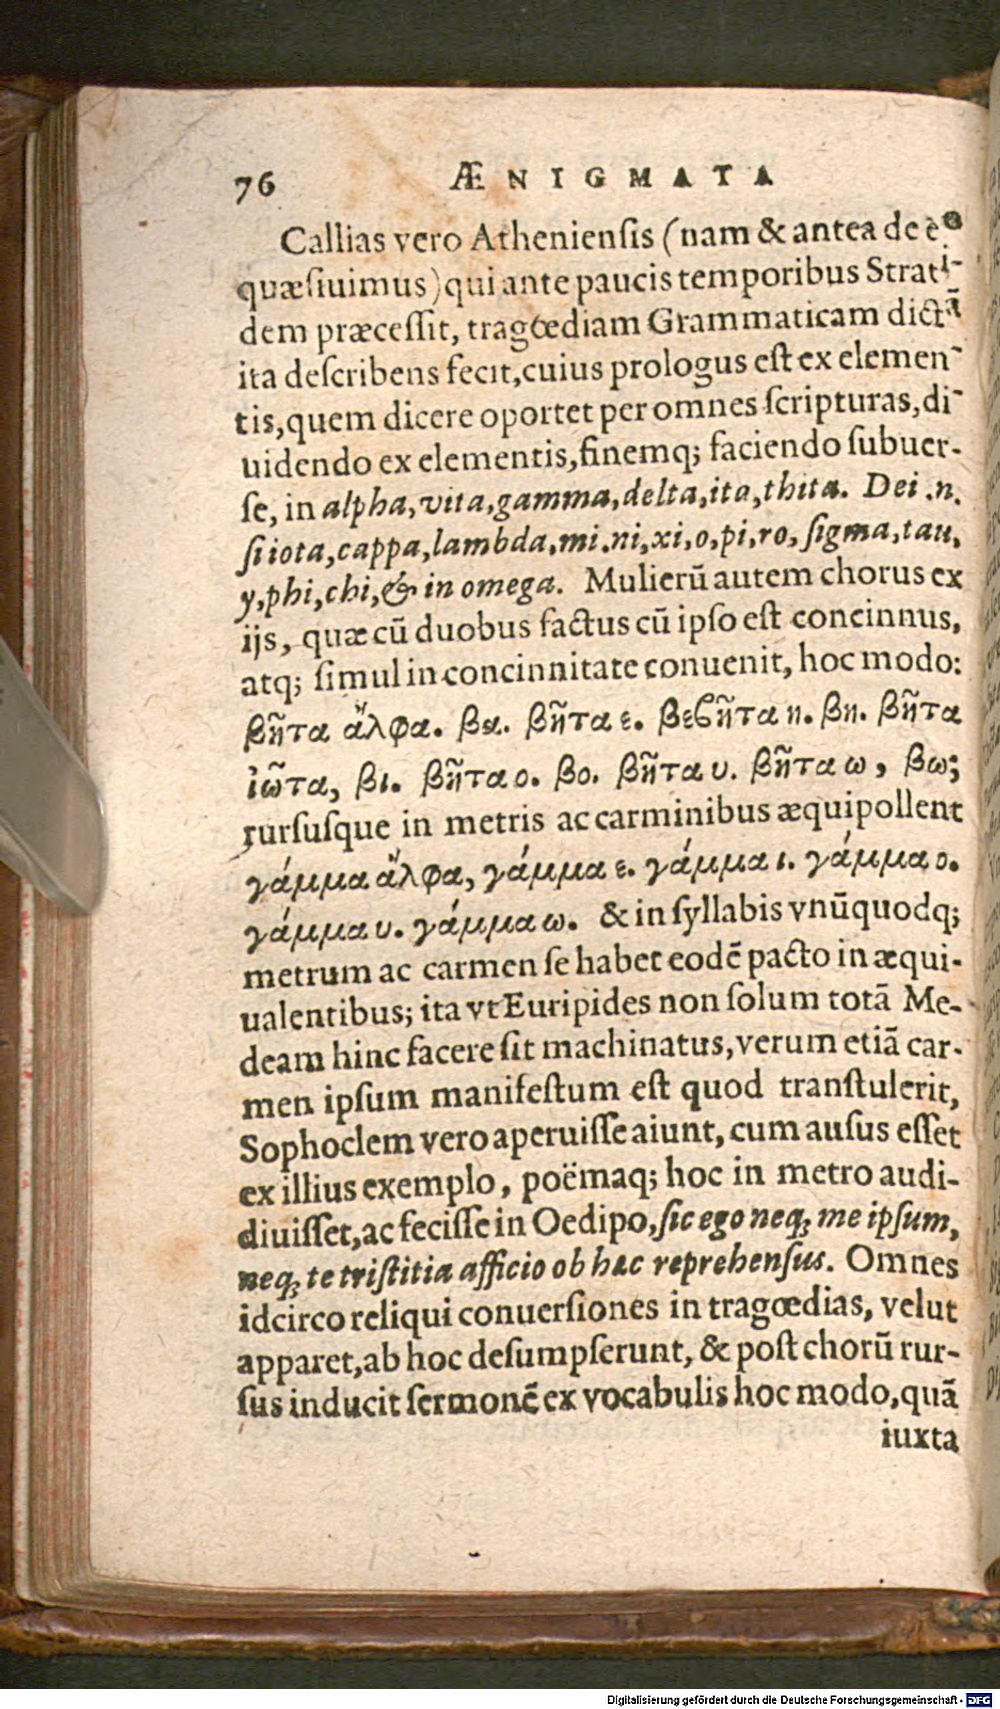 76 ÆNIGMATA
Callias vero Atheniensis (nam & antea de eo
quæsiuimus) qui ante paucis temporibus Strati-
dem præcessit, tragœdiam Grammaticam dictã
ita describens fecit, cuius prologus est ex elemen-
tis, quem dicere oportet per omnes scripturas, di-
uidendo ex elementis, finemq; faciendo subuer-
se, in alpha, vita, gamma, delta, ita, thita. Dei .n.
si iota, cappa, lambda, mi. ni, xi, o, pi, ro, sigma, tau,
y, phi, chi, & in omega. Mulierũ autem chorus ex
ijs, quæ cũ duobus factus cũ ipso est concinnus,
atq; simul in concinnitate conuenit, hoc modo:
βῆτα ἄλφα. βα. βῆτα ε. βεβῆτα η. βη. βῆτα
ἰῶτα, βι. βῆτα ο. βο. βῆτα υ. βῆτα ω, βω;
rursusque in metris ac carminibus æquipollent
γάμμα ἄλφα, γάμμα ε. γάμμα ι. γάμμα ο.
γάμμα υ. γάμμα ω. & in syllabis vnũquodq;
metrum ac carmen se habet eodẽ pacto in æqui-
ualentibus; ita vt Euripides non solum totã Me-
deam hinc facere sit machinatus, verum etiã car-
men ipsum manifestum est quod transtulerit,
Sophoclem vero aperuisse aiunt, cum ausus esset
ex illius exemplo, poëmaq; hoc in metro audi-
diuisset, ac fecisse in Oedipo, sic ego neq; me ipsum,
neq; te tristitia afficio ob hæc reprehensus. Omnes
idcirco reliqui conuersiones in tragœdias, velut
apparet, ab hoc desumpserunt, & post chorũ rur-
sus inducit sermonẽ ex vocabulis hoc modo, quã
iuxta
Digitalisierung gefördert durch die Deutsche Forschungsgemeinschaft - DFG